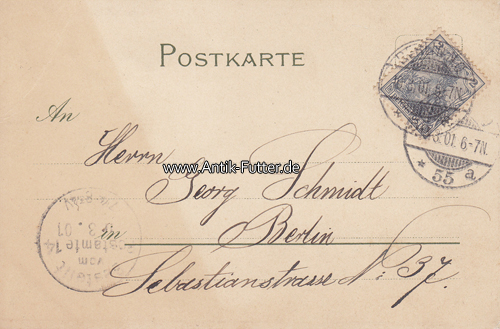 POSTKARTE
An
Herrn
Georg Schmidt
in Berlin
Sebastianstrasse No 37.
www.Antik-Futter.de
3.01. 6-7N.
* 55 a
Bestellt
vom
Postamte 14
3.01